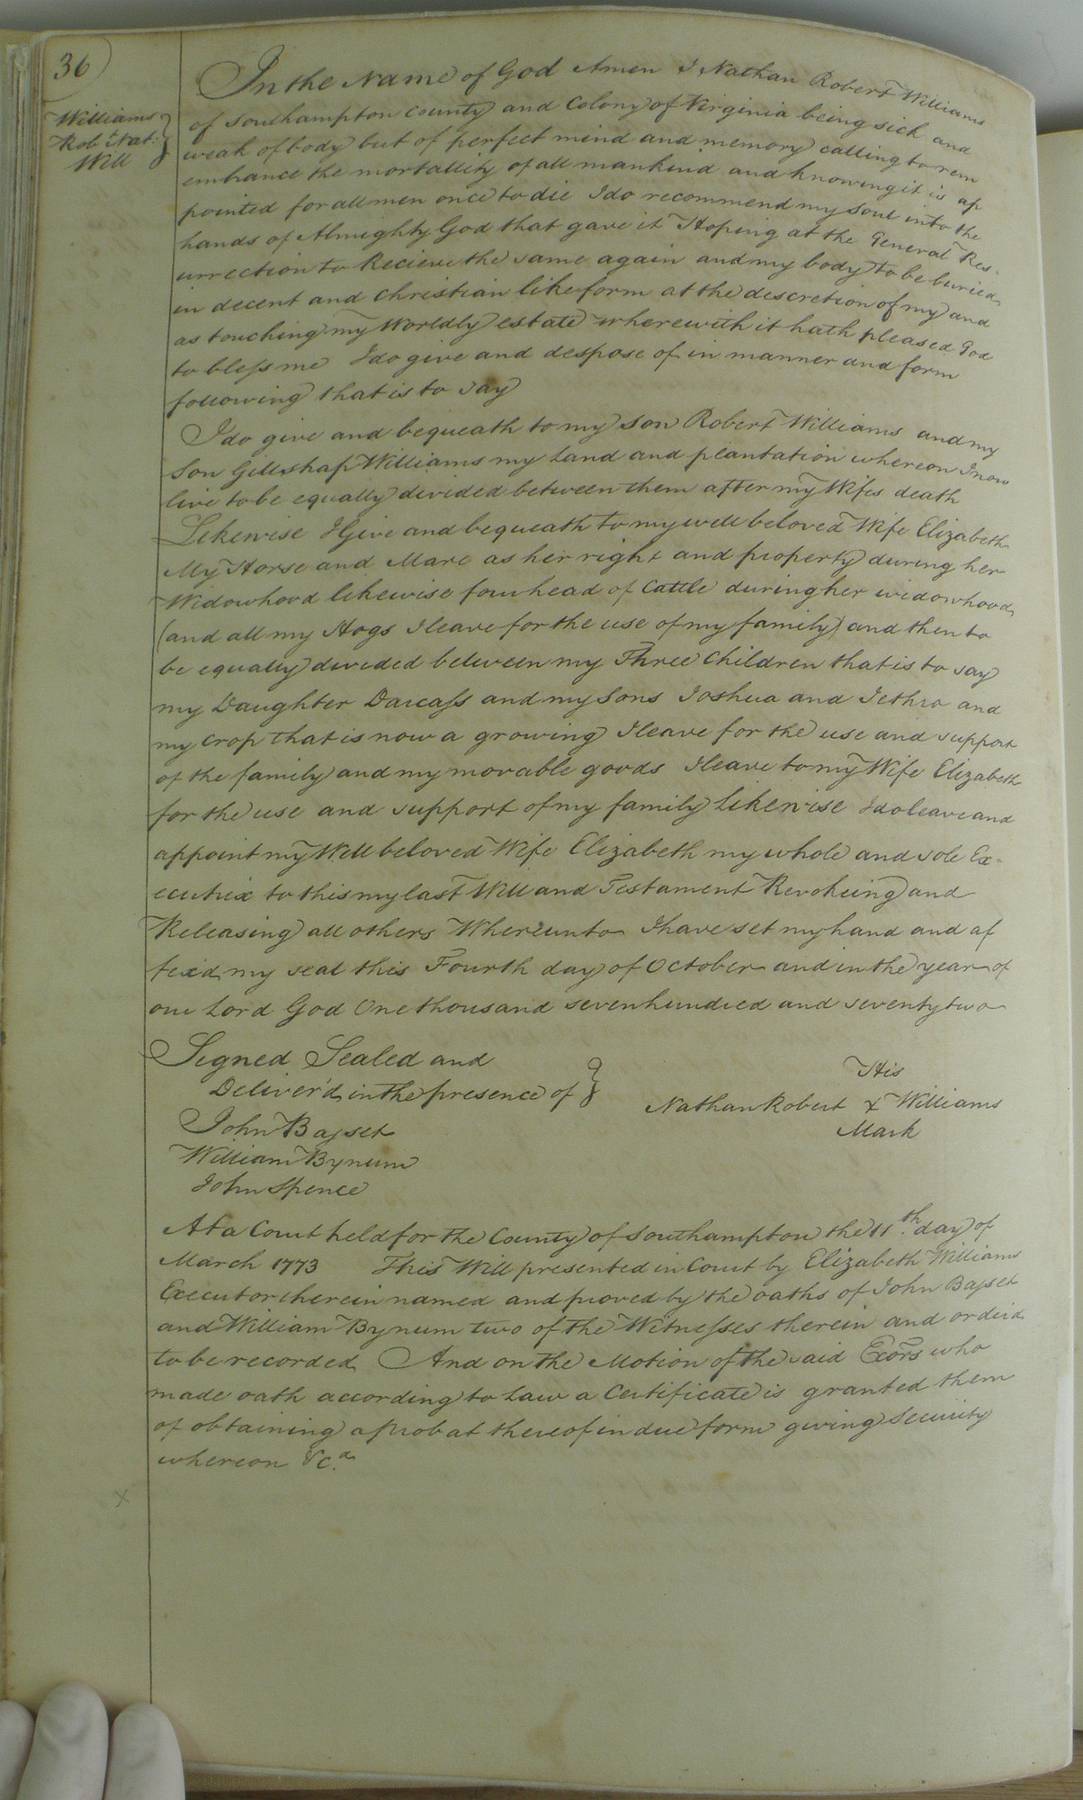 36
Williams
Robt Nat:
Will
In the Name of God Amen I Nathan Robert Williams
of Southampton County and Colony of Virginia being sick and
weak of body but of perfect mind and memory calling to rem
embrance the mortallity of all mankind and knowing it is ap
pointed for all men once to die I do recommend my Soul into the
hands of Almighty God that gave it Hoping at the General Res-
urrection to Recieve the same again and my body to be buried
in decent and Christian like form at the descretion of my and
as touching my Worldly estate wherewith it hath pleased God
to bless me I do give and despose of in manner and form
following that is to say
I do give and bequeath to my son Robert Williams and my
Son Gillshap Williams my Land and plantation whereon I now
live to be equally divided between them after my Wifes death
Likewise I Give and bequeath to my well beloved Wife Elizabeth
My Horse and Mare as her right and property during her
Widowhood likewise four head of Cattle during her widowhood
(and all my Hogs I leave for the use of my family) and then to
be equally divided between my Three Children that is to say
my Daughter Darcass and my Sons Joshua and Jethro and
my crop that is now a growing I leave for the use and support
of the family and my movable goods I leave to my Wife Elizabeth
for the use and support of my family Likewise I do leave and
appoint my Well beloved Wife Elizabeth my whole and sole Ex-
ecutrix to this my last Will and Testament Revokeing and
Releasing all others Whereunto I have set my hand and af
fixd my seal this Fourth day of October and in the year of
our Lord God One thousand seven hundred and seventy two
Signed Sealed and
Deliver'd in the presence of
His
Nathan Robert x Williams
Mark
John Basset
William Bynum
John Spence
At a Court held for the County of Southampton the 11th. day of
March 1773 This Will presented in Court by Elizabeth Williams
Executor therein named and proved by the oaths of John Basset
and William Bynum two of the Witnesses therein and orderd
to be recorded And on the Motion of the said Exors who
made oath according to Law a Certificate is granted them
of obtaining a probat thereof in due form giving Security
whereon &c.a
x